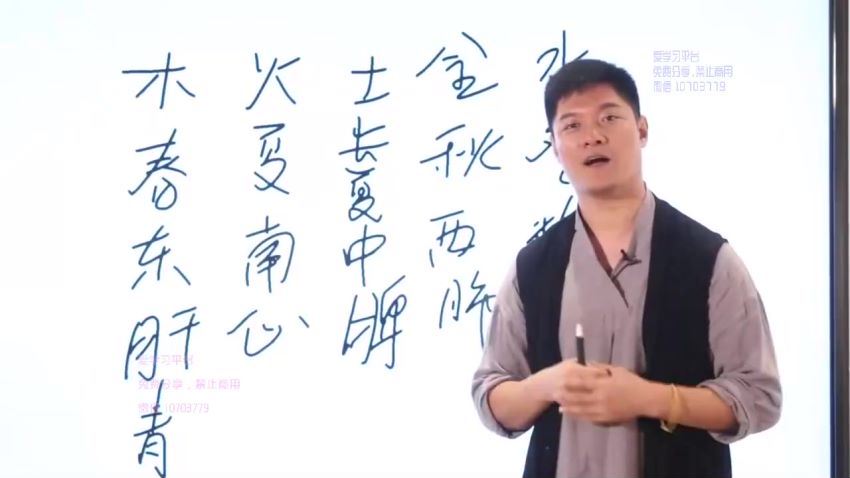 木 火 土 金 水
春 夏 长夏 秋
东 南 中 西
肝 心 脾 肺
青
爱学习平台
免费分享，禁止商用
微信 10703779
爱学习平台
免费分享，禁止商用
微信 10703779